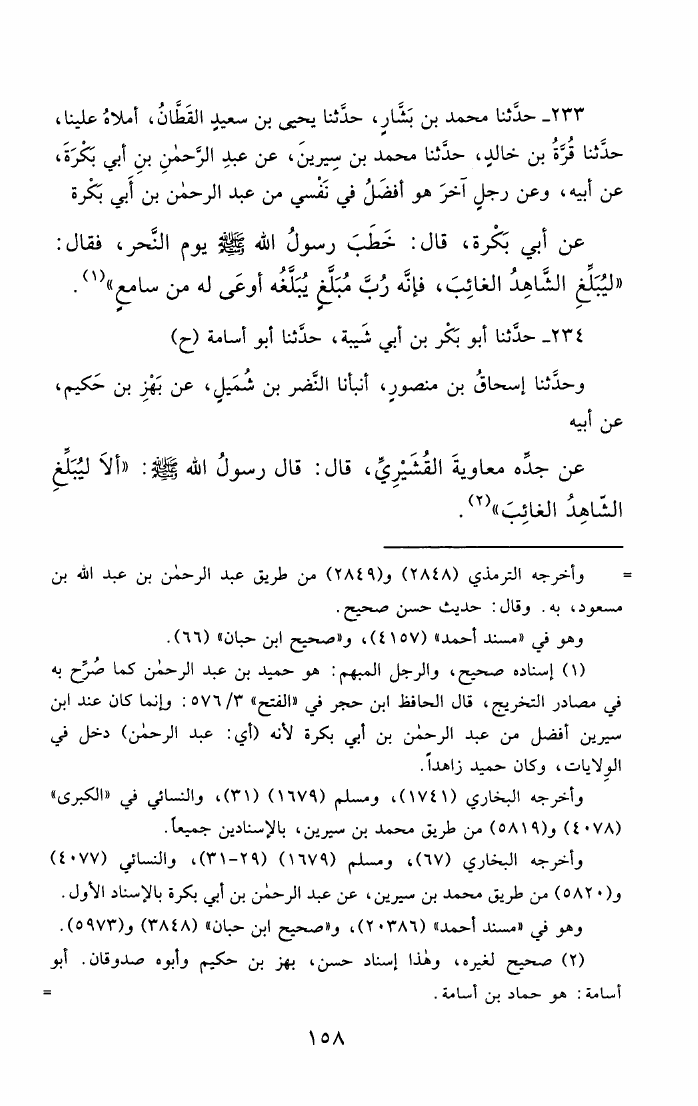 ٢٣٣ـ حدَّثنا محمد بن بَشَّارٍ، حدَّثنا يحيى بن سعيدٍ القَطَّانُ، أملاهُ علينا،
حدَّثنا قُرَّةُ بن خالدٍ، حدَّثنا محمد بن سِيرينَ، عن عبدِ الرَّحمٰنِ بنِ أبي بَكْرَةَ،
عن أبيه، وعن رجلٍ آخرَ هو أفضَلُ في نَفْسي من عبد الرحمٰن بن أَبي بَكْرة
عن أبي بَكْرة، قال: خَطَبَ رسولُ الله ﷺ يوم النَّحر، فقال:
«ليُبَلِّغِ الشَّاهِدُ الغائِبَ، فإنَّه رُبَّ مُبَلَّغٍ يُبَلَّغُه أوعَى له من سامعٍ»(١).
٢٣٤ـ حدَّثنا أبو بَكْر بن أبي شَيبة، حدَّثنا أبو أسامة (ح)
وحدَّثنا إسحاقُ بن منصورٍ، أنبأنا النَّضر بن شُمَيلٍ، عن بَهْزِ بن حَكيم،
عن أبيه
عن جدِّه معاويةَ القُشَيْرِيِّ، قال: قال رسولُ الله ﷺ: «ألاَ ليُبَلِّغِ
الشّاهِدُ الغائِبَ»(٢).
= وأخرجه الترمذي (٢٨٤٨) و(٢٨٤٩) من طريق عبد الرحمٰن بن عبد الله بن
مسعود، به. وقال: حديث حسن صحيح.
وهو في «مسند أحمد» (٤١٥٧)، و«صحيح ابن حبان» (٦٦).
(١) إسناده صحيح، والرجل المبهم: هو حميد بن عبد الرحمٰن كما صُرِّح به
في مصادر التخريج، قال الحافظ ابن حجر في «الفتح» ٣/ ٥٧٦: وإنما كان عند ابن
سيرين أفضل من عبد الرحمٰن بن أبي بكرة لأنه (أي: عبد الرحمٰن) دخل في
الوِلايات، وكان حميد زاهداً.
وأخرجه البخاري (١٧٤١)، ومسلم (١٦٧٩) (٣١)، والنسائي في «الكبرى»
(٤٠٧٨) و(٥٨١٩) من طريق محمد بن سيرين، بالإسنادين جميعاً.
وأخرجه البخاري (٦٧)، ومسلم (١٦٧٩) (٢٩-٣١)، والنسائي (٤٠٧٧)
و(٥٨٢٠) من طريق محمد بن سيرين، عن عبد الرحمٰن بن أبي بكرة بالإسناد الأول.
وهو في «مسند أحمد» (٢٠٣٨٦)، و«صحيح ابن حبان» (٣٨٤٨) و(٥٩٧٣).
(٢) صحيح لغيره، وهٰذا إسناد حسن، بهز بن حكيم وأبوه صدوقان. أبو
أسامة: هو حماد بن أسامة. =
١٥٨